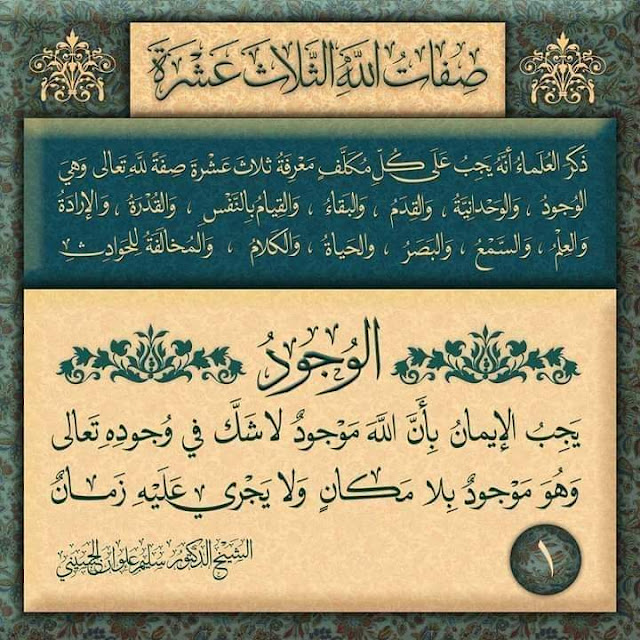 صِفَاتُ اللَّهِ الثَّلَاثَ عَشْرَةَ
ذَكَرَ العُلَمَاءُ أَنَّهُ يَجِبُ عَلَى كُلِّ مُكَلَّفٍ مَعْرِفَةُ ثَلَاثَ عَشْرَةَ صِفَةً لِلَّهِ تَعَالَى وَهِيَ
الوُجُودُ ، وَالوَحْدَانِيَّةُ ، وَالقِدَمُ ، وَالبَقَاءُ ، وَالقِيَامُ بِالنَّفْسِ ، وَالقُدْرَةُ ، وَالإِرَادَةُ
وَالعِلْمُ ، وَالسَّمْعُ ، وَالبَصَرُ ، وَالحَيَاةُ ، وَالكَلَامُ ، وَالمُخَالَفَةُ لِلحَوَادِثِ
الوُجُودُ
يَجِبُ الإِيمَانُ بِأَنَّ اللَّهَ مَوْجُودٌ لَا شَكَّ فِي وُجُودِهِ تَعَالَى
وَهُوَ مَوْجُودٌ بِلَا مَكَانٍ وَلَا يَجْرِي عَلَيْهِ زَمَانٌ
الشيخ الدكتور سليم علوان الحسيني
١